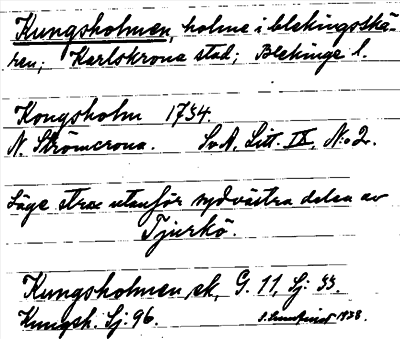 Kungsholmen, holme i blekingsskä-
ren; Karlskrona stad; Blekinge l.
Kongsholm 1734.
N. Strömcrona. SvA. Litt. IX, N:o 2.
Läge strax utanför sydvästra delen av
Tjurkö.
Kungsholmen, ek, G. 11, Sj: 33.
Kungsh. Sj: 96. 1938.